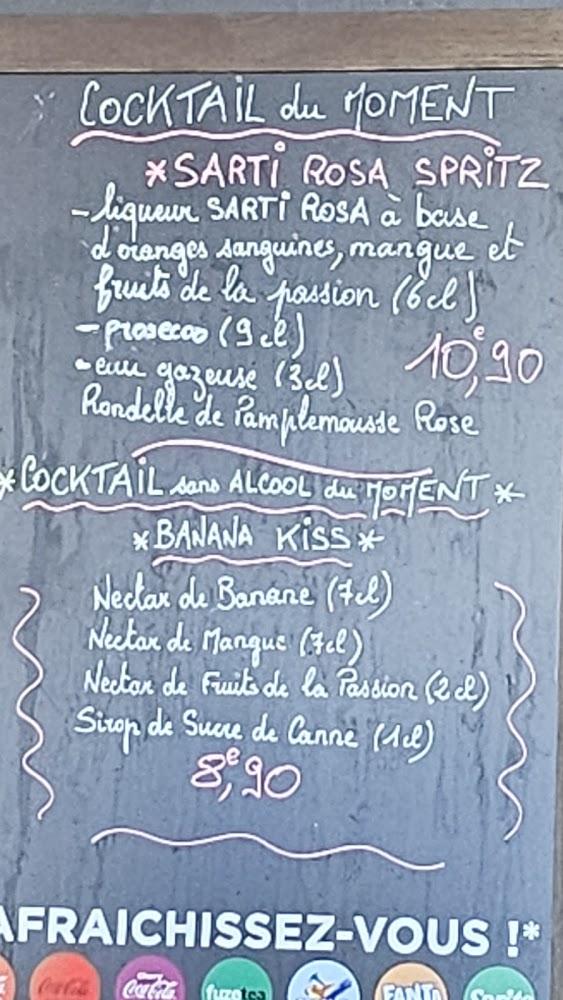 COCKTAIL du MOMENT
*SARTI ROSA SPRITZ
- liqueur SARTI ROSA à base
d'oranges sanguines, mangue et
fruits de la passion (6cl)
- prosecco (9cl)
10,e90
- eau gazeuse (3cl)
Rondelle de Pamplemousse Rose
*COCKTAIL sans ALCOOL du MOMENT*
*BANANA KISS*
Nectar de Banane (7cl)
Nectar de Mangue (7cl)
Nectar de Fruits de la Passion (2cl)
Sirop de Sucre de Canne (1cl)
8,e90
AFRAICHISSEZ-VOUS !*
Coca-Cola Coca-Cola fuzetea FANTA Sprite